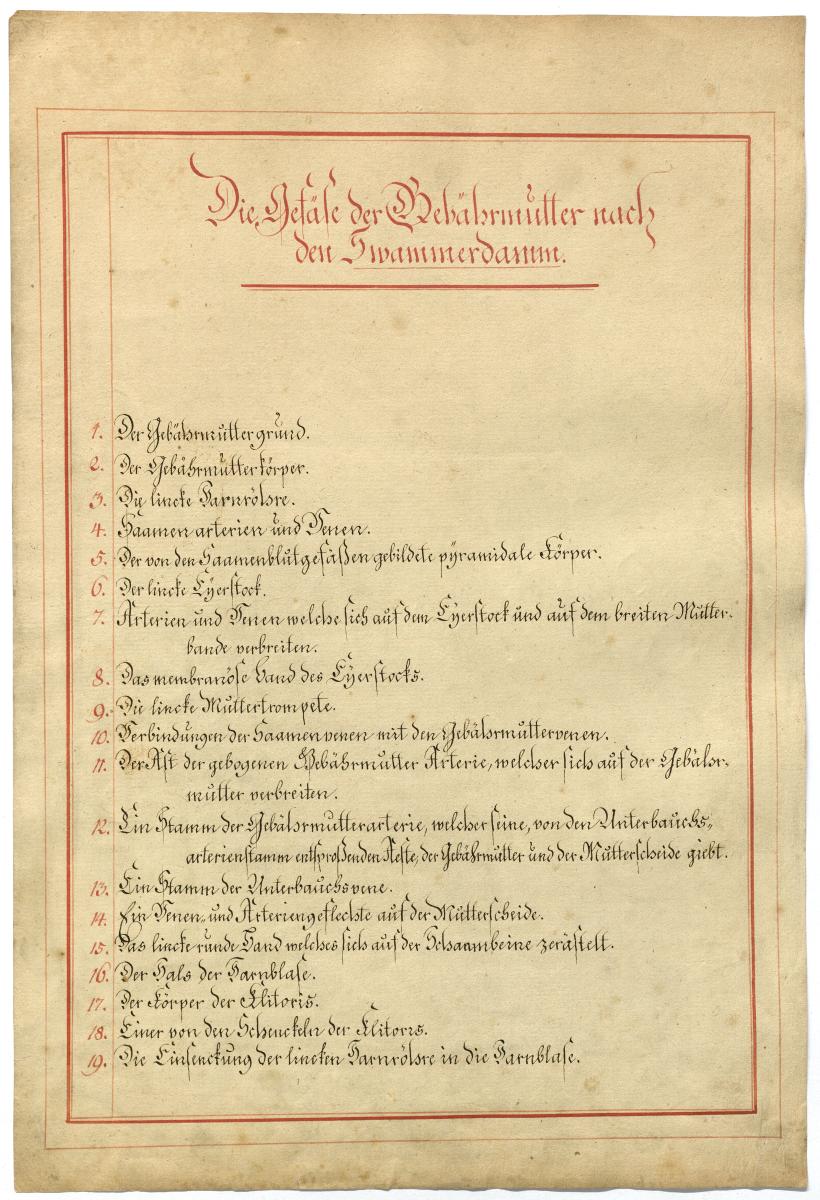 Die Gefäse der Gebährmutter nach
den Swammerdamm.
1. Der Gebährmutter grund.
2. Der Gebährmutterkörper.
3. Die lincke Harnröhre.
4. Saamen arterien und Venen.
5. Der von den Saamenblutgefäßen gebildete pÿramidale Körper.
6. Der lincke Eÿerstock.
7. Arterien und Venen welche sich auf dem Eÿerstock und auf dem breiten Mutter-
bande verbreiten.
8. Das membranöse band des Eÿerstocks.
9. Die lincke Muttertrompete.
10. Verbindungen der Saamenvenen mit den Gebährmuttervenen.
11. Der Ast der gebogenen Gebährmutter Arterie, welcher sich auf der Gebähr-
mutter verbreiten.
12. Ein Stamm der Gebährmutterarterie, welcher seine, von den Unterbauchs-
arterienstamm entsproßenden Aeste, der Gebährmutter und der Mutterscheide giebt.
13. Ein Stamm der Unterbauchsvene.
14. Ein Venen- und Arteriengeflechte auf der Mutterscheide.
15. Das lincke runde Band welches sich auf der Schaambeine zerästelt.
16. Der Hals der Harnblase.
17. Der Körper der Klitoris.
18. Einer von den Schenckeln der Klitoris.
19. Die Einsenckung der lincken Harnröhre in die Harnblase.